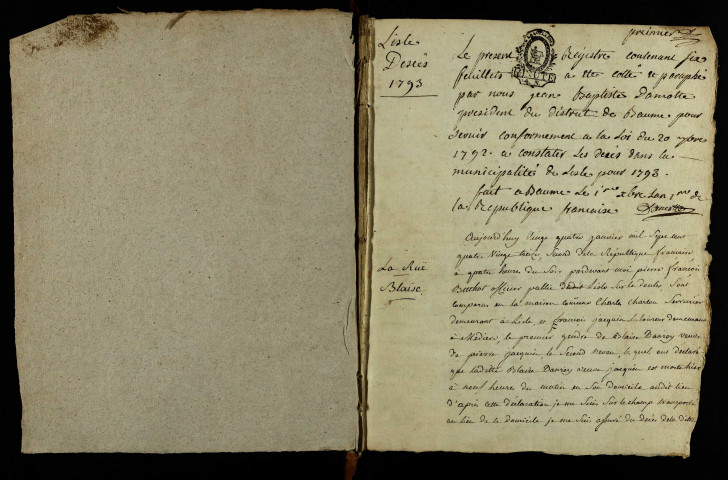 premier
Lisle
Decès
1793
Le present Registre contenant six
feuillets a ete cotté et paraphé
par nous jean Baptiste Damotte
president du district de Baume pour
servir conformement a la Loi du 20 7bre
1792. a constater Les decès dans la
municipalité de Lisle pour 1793.
fait a Baume Le 1er xbre Lan 1er de
la Republique francaise
La Rue
Blaise
Aujourd'huy Vingt quatre janvier mil Sept cent
quatre Vingt treize, Second de la République francoise
à quatre heure du Soir pardevant moi pierre francois
officier public dudit Lisle Sur le doubs Sont
comparus en la maison commune Charle Serrurier
demeurant à Lisle, et francois jacquin Laboureur demeurant
à Médiere, le premier gendre de Blaise veuve
de pierre jacquin le Second neveu, lequel ont déclaré
que ladette Blaise veuve jacquin est morte hier
à neuf heure du matin en Son Domicile audit lieu
d'après cette déclaration je me Suis Sur le champ transporté
au lieu de le domicile je me Suis assuré du decès de la dite